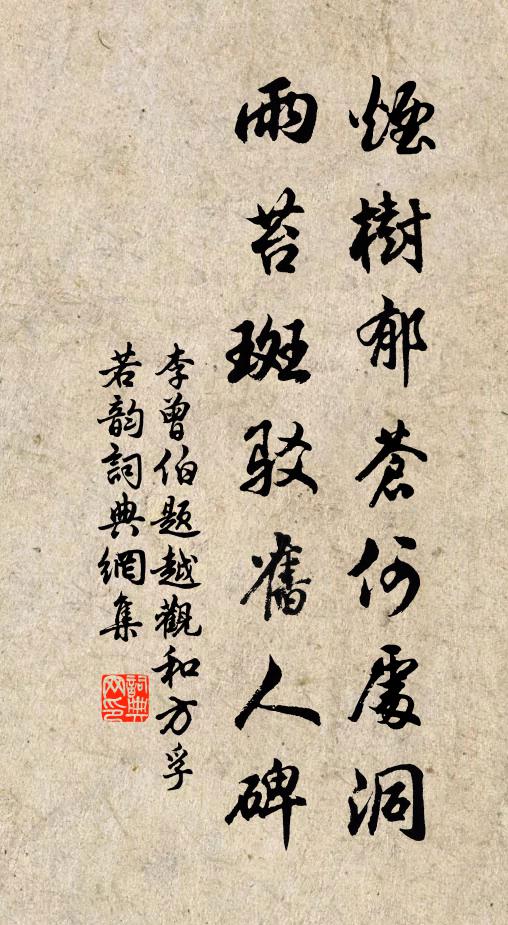 煙樹郁蒼何處洞
雨苔斑駁舊人碑
李曾伯題越觀和方孚
若韵詞典網集
詞典
网印